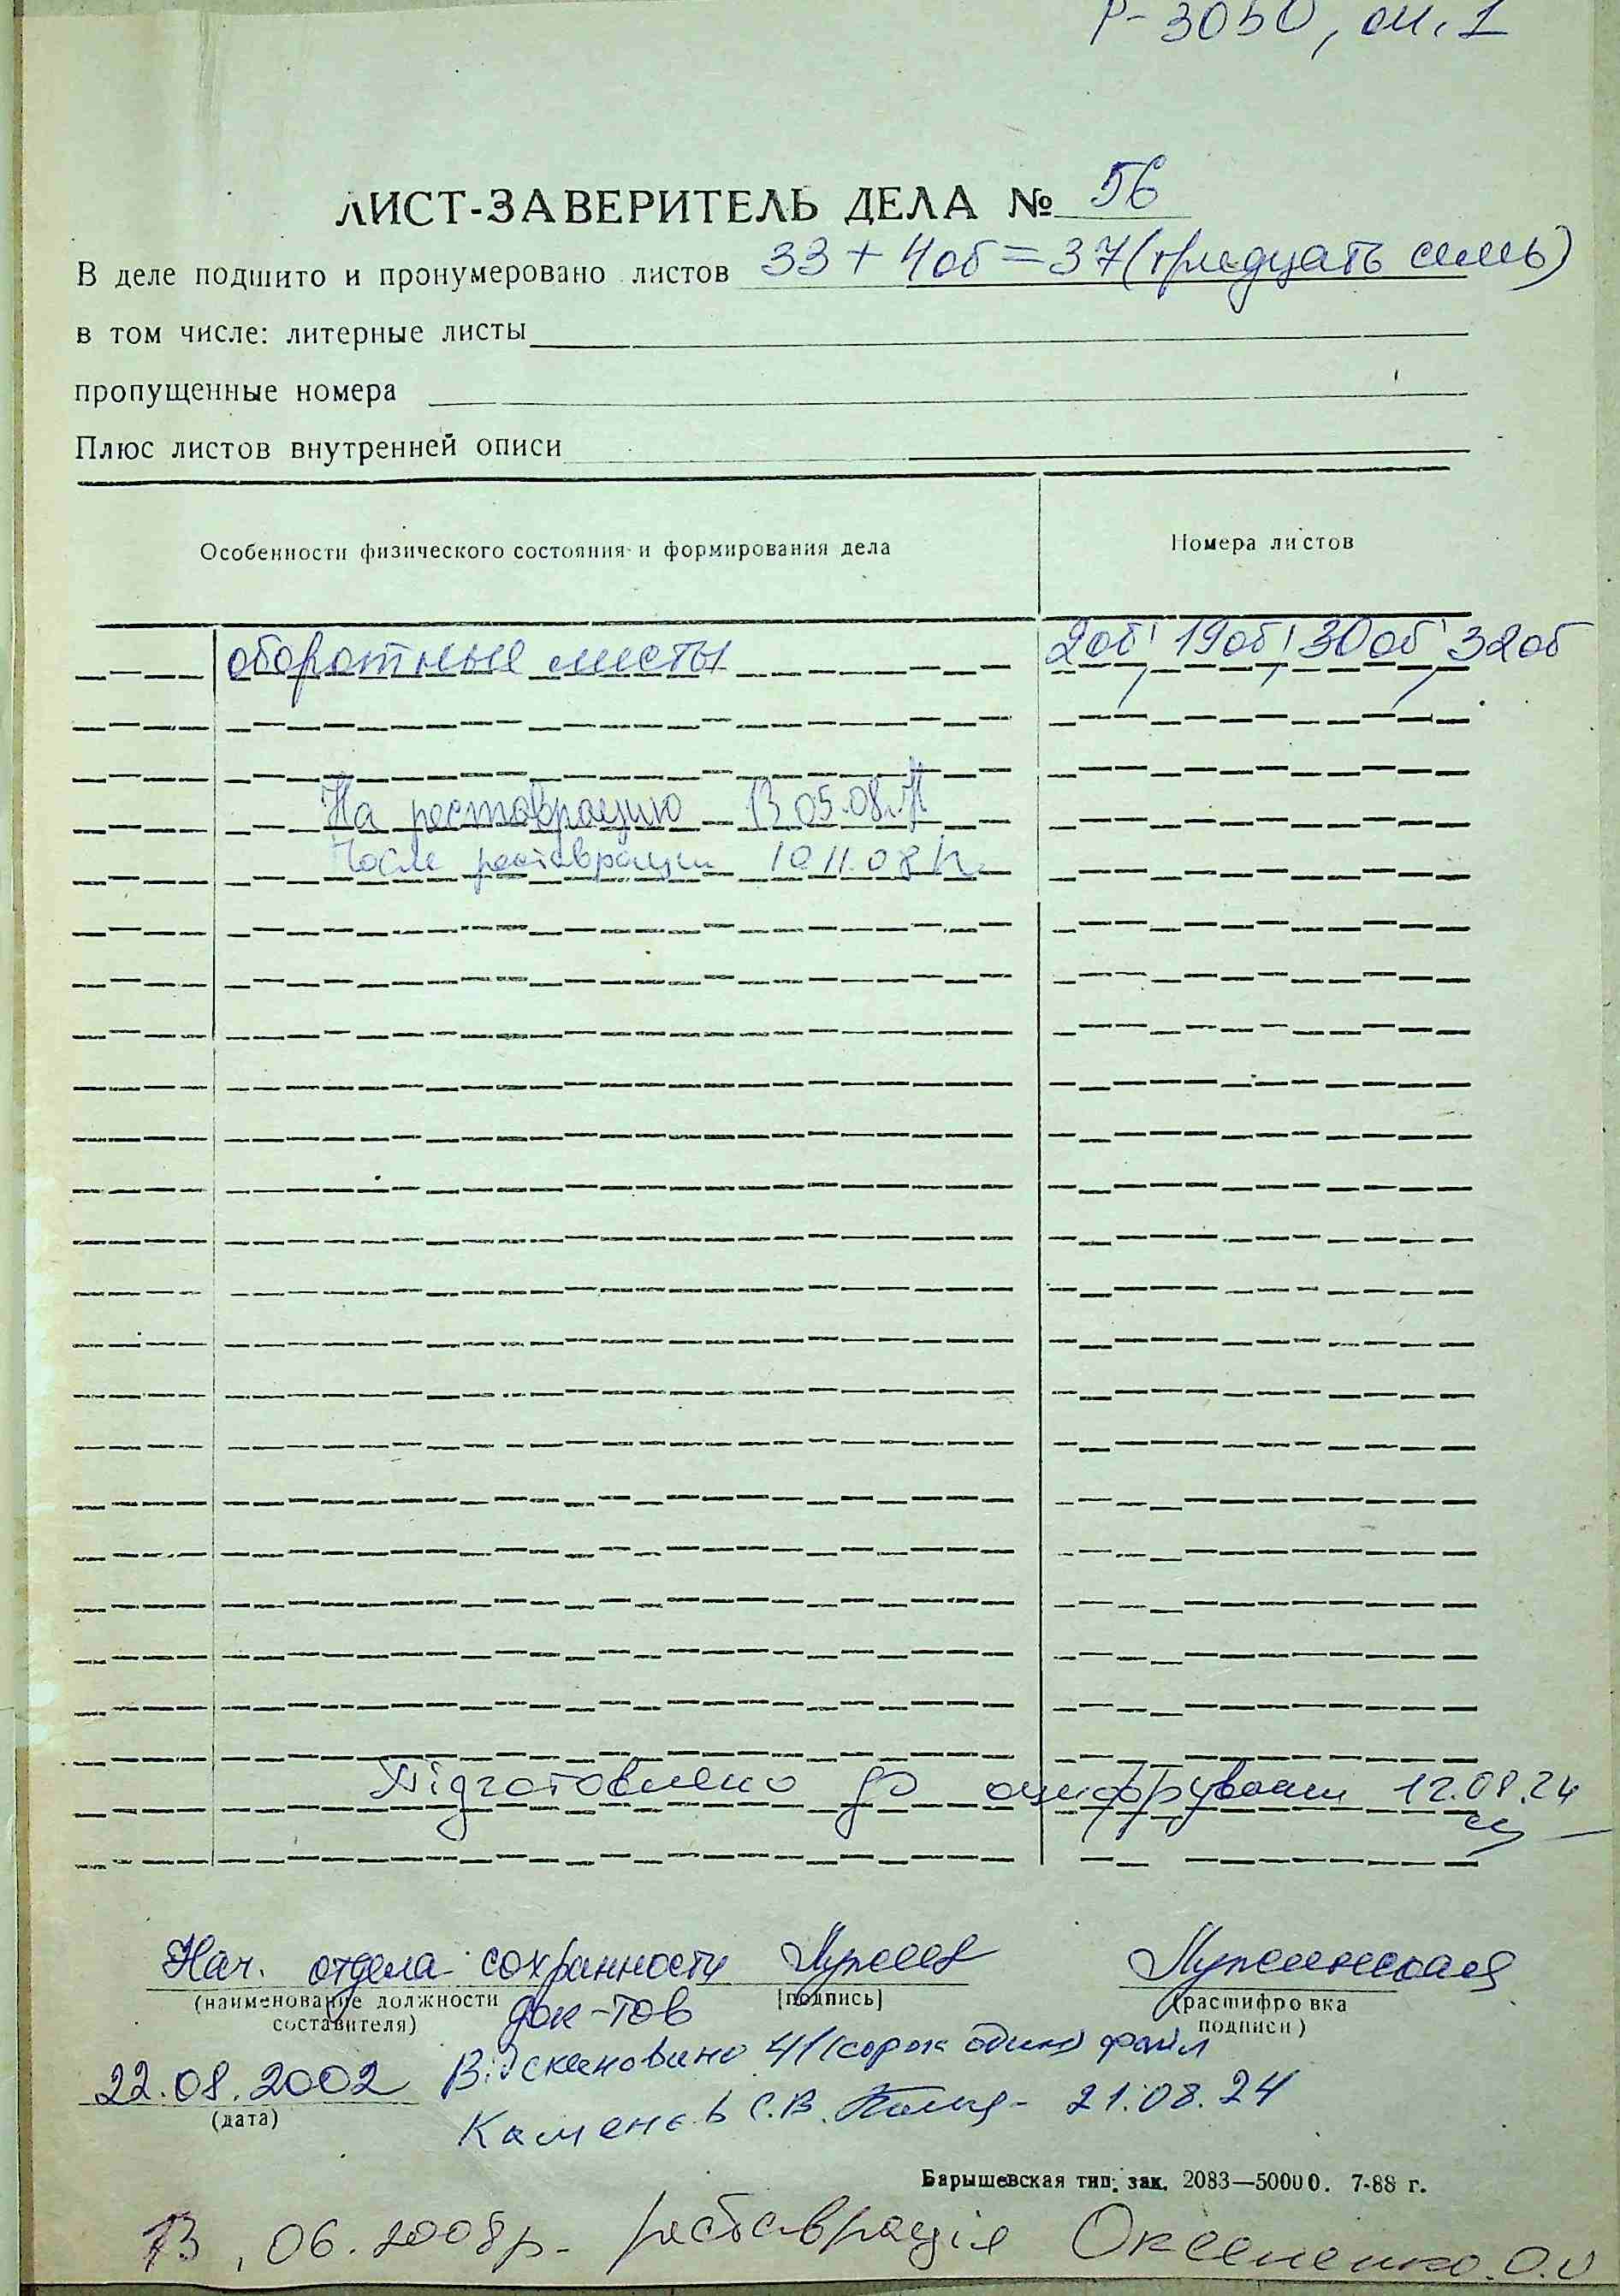 Р-3050, оп. 1
ЛИСТ-ЗАВЕРИТЕЛЬ ДЕЛА № 56
В деле подшито и пронумеровано листов 33 + 4об = 37 (тридцать семь)
в том числе: литерные листы
пропущенные номера
Плюс листов внутренней описи
Особенности физического состояния и формирования дела Номера листов
оборотные листы 2об, 19об, 30об, 32об
На реставрацию 13 05.08
После реставрации 10 11.08
Підготовлено до оцифрування 12.08.24
Нач. отдела сохранности
(наименование должности составителя) док-тов [подпись] (расшифровка подписи)
Відскановано 41 (сорок один) файл
22.08.2002
(дата)
Каменєв С.В. 21.08.24
Барышевская тип. зак. 2083—50000. 7-88 г.
13.06.2008р. реставрація Оксененко О.О